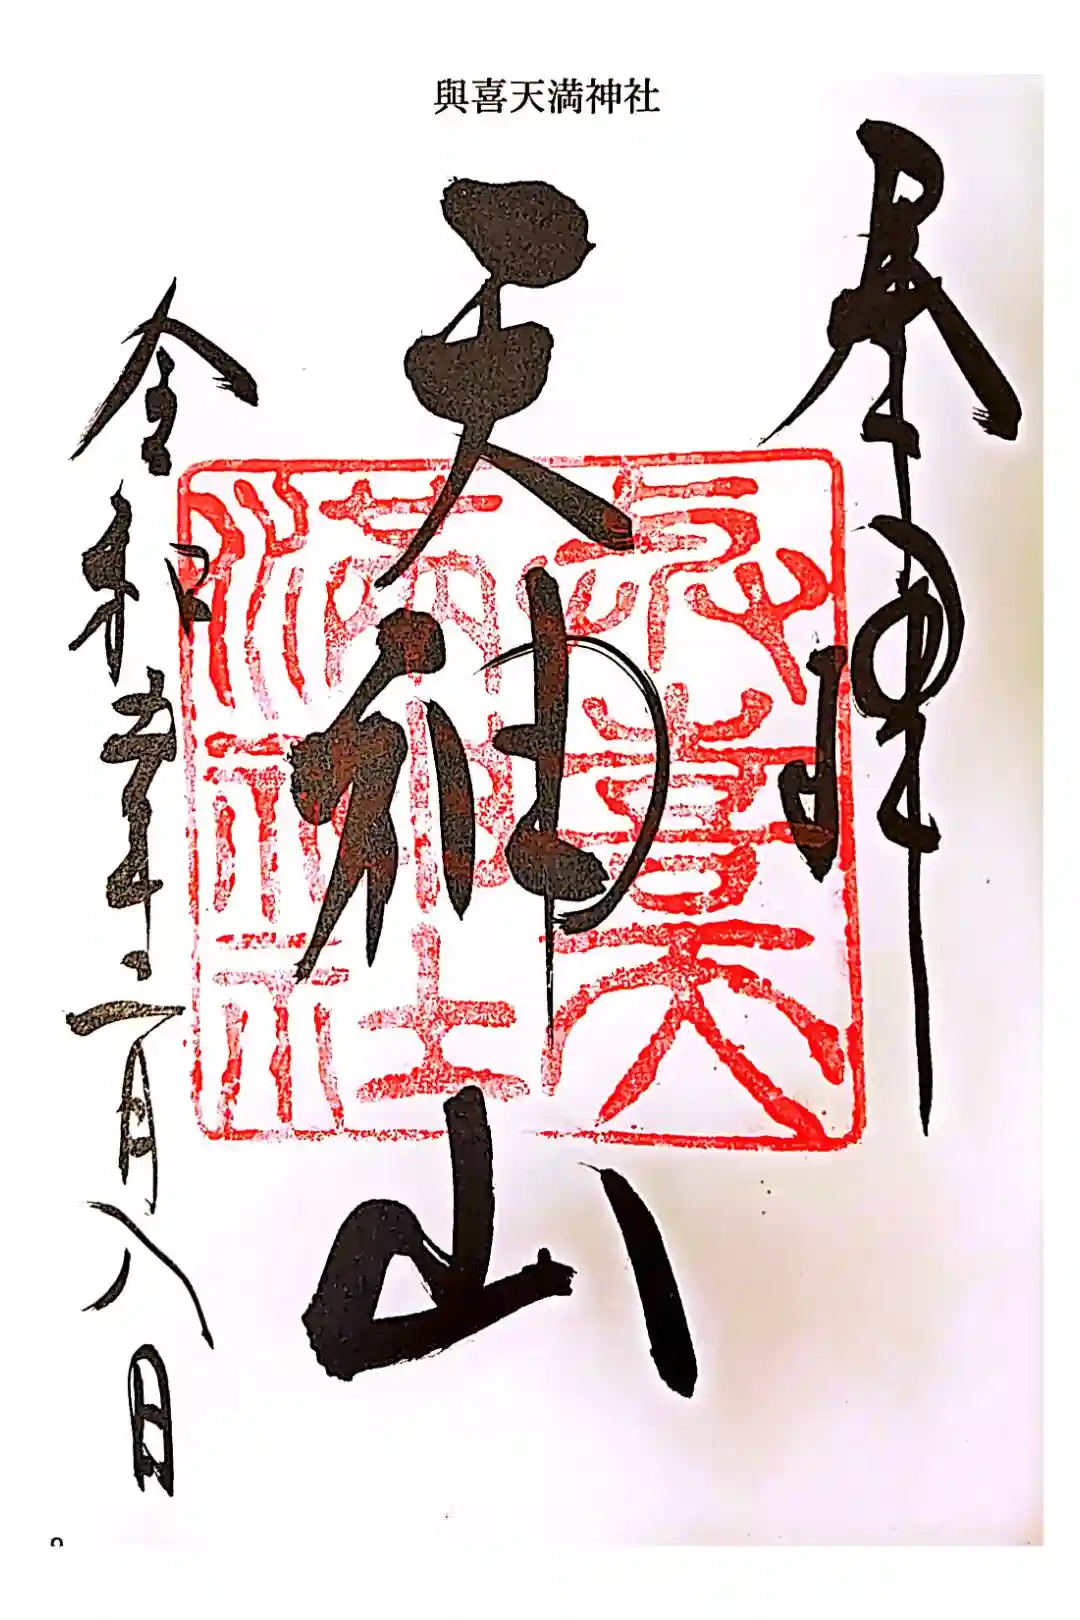 與喜天満神社
奉拝
天神山
令和年二月八日
與喜天
満神社